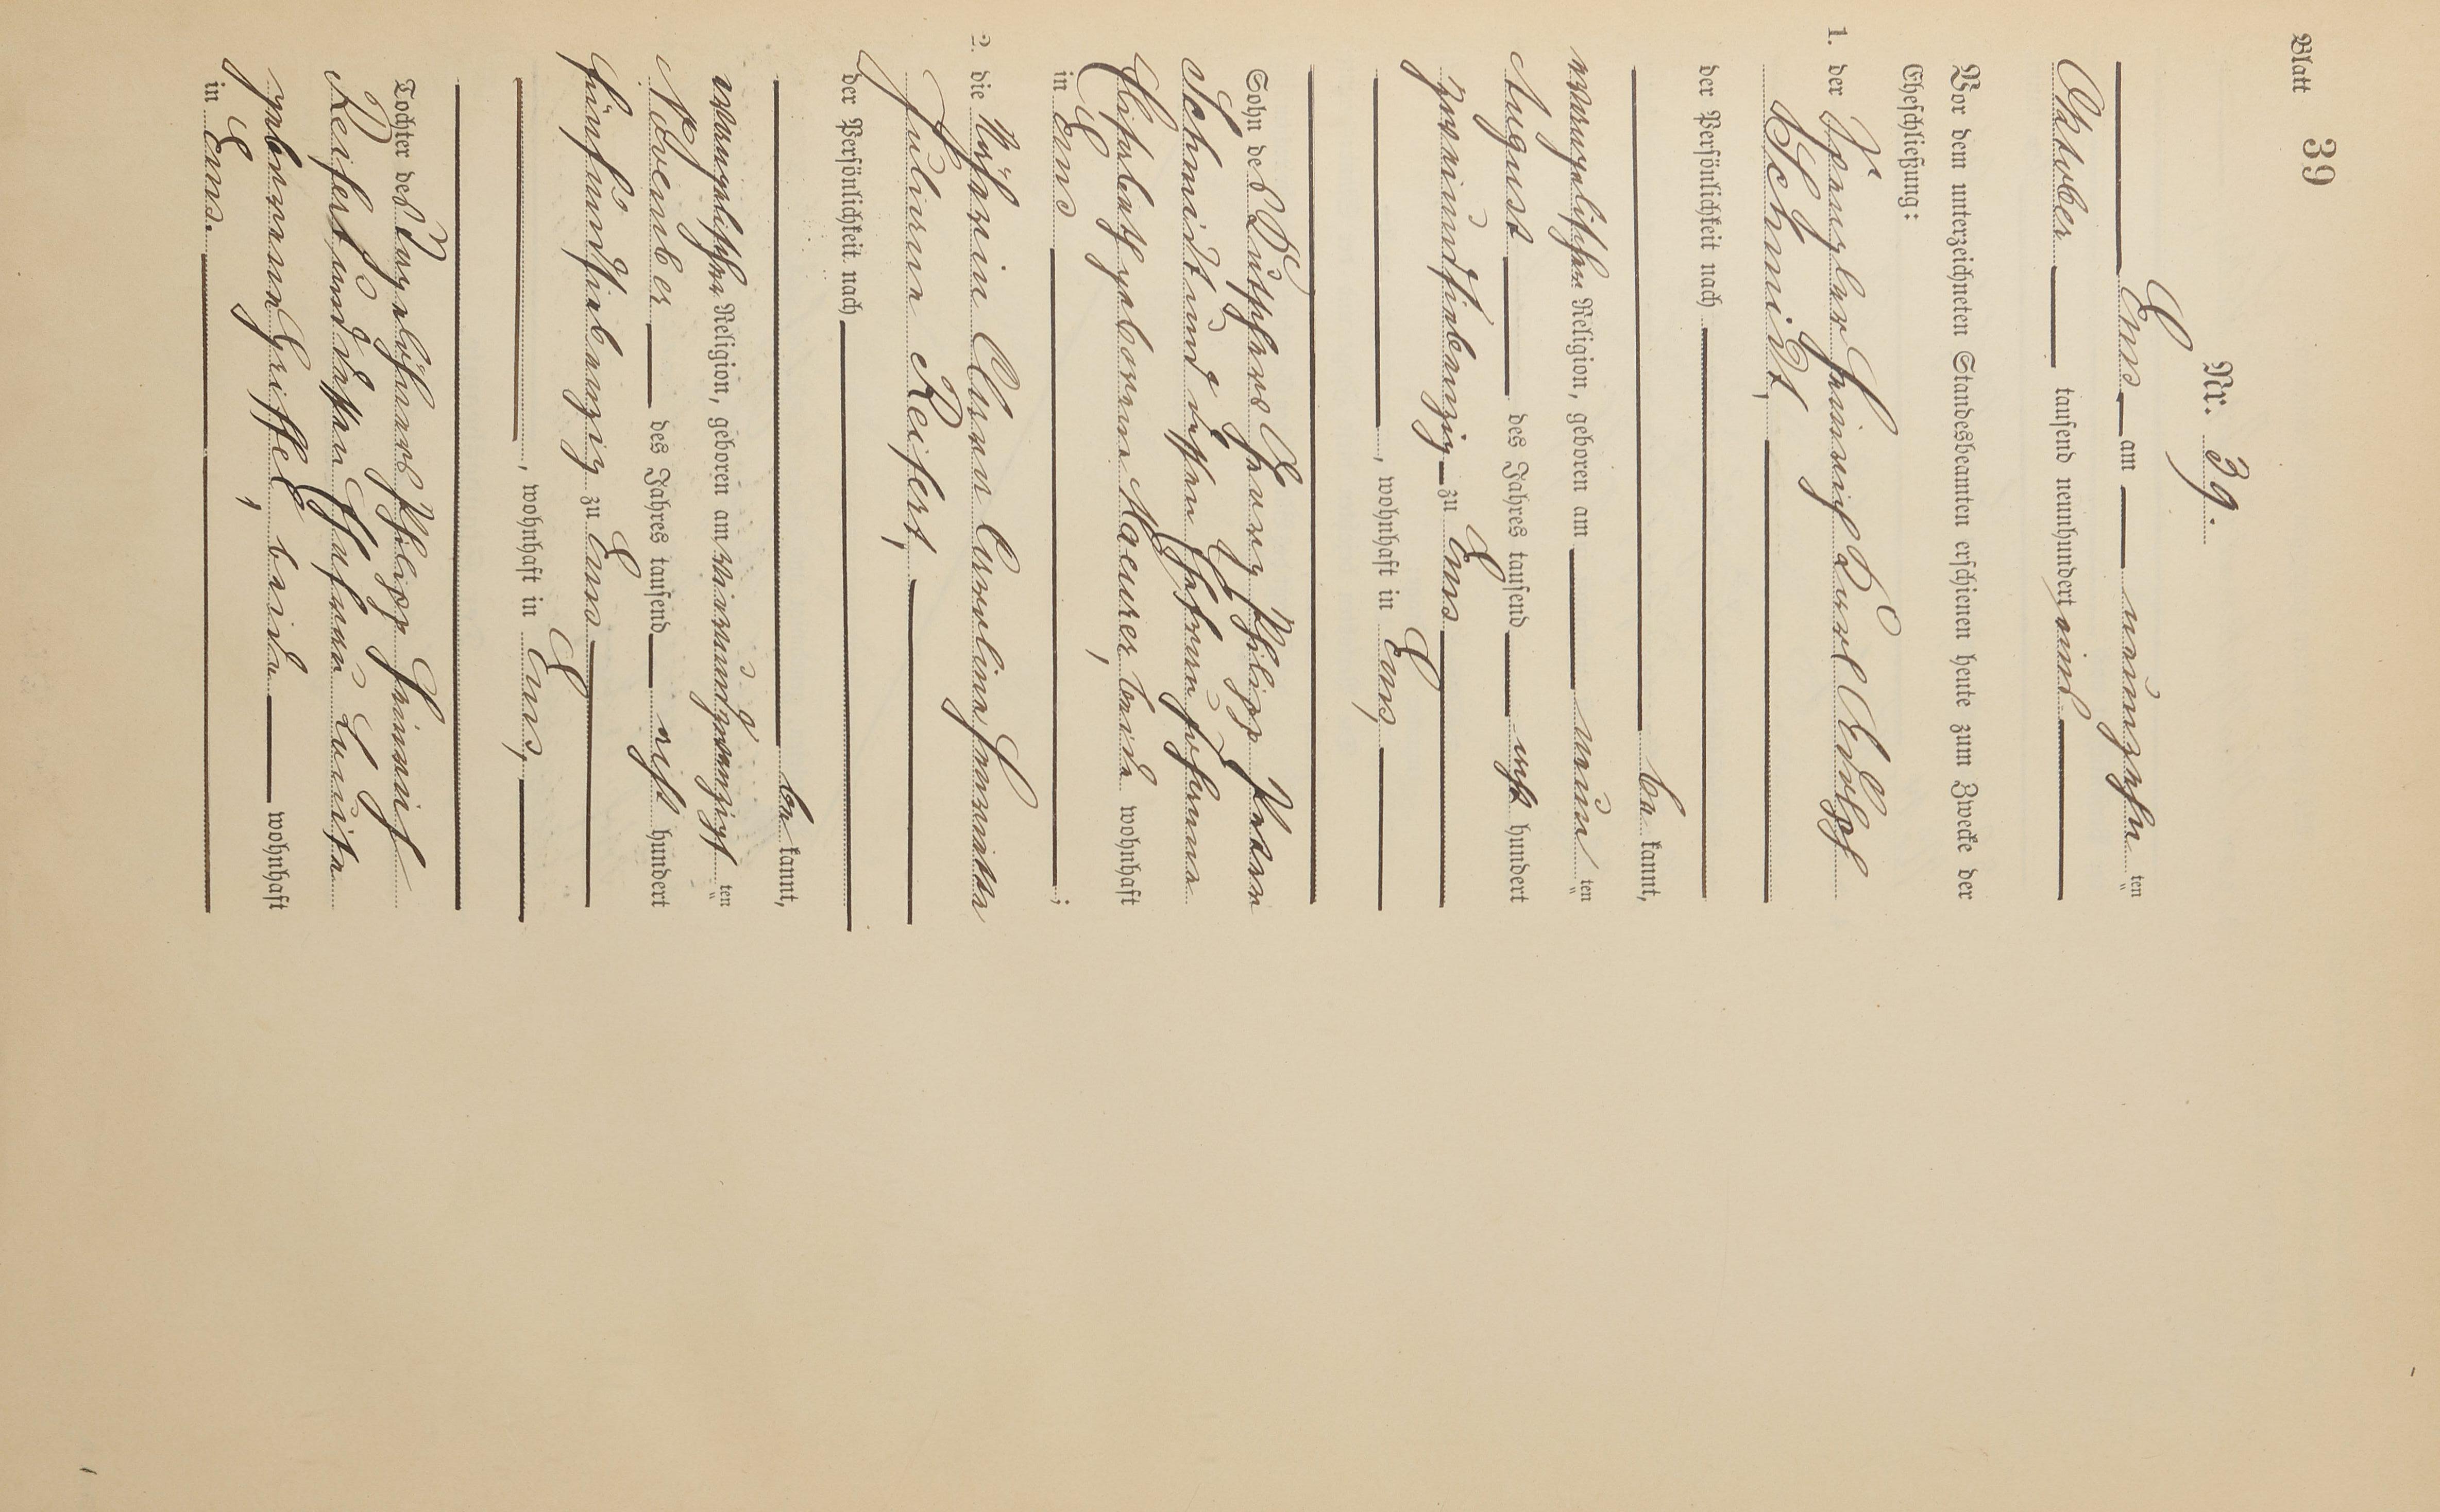 Blatt 39
Nr. 39.
Ems am neunzehn ten
Oktober tausend neunhundert eins
Vor dem unterzeichneten Standesbeamten erschienen heute zum Zwecke der
Eheschließung:
1. der Spengler Heinrich Karl Adolf
Schmidt,
der Persönlichkeit nach
be kannt,
evangelischen Religion, geboren am neun ten
August des Jahres tausend acht hundert
zweiundsiebenzig zu Ems
, wohnhaft in Ems,
Sohn des Kutschers Georg Philipp
Schmidt und dessen Ehefrau Johanna
Elisabeth geborene Maeurer, beide wohnhaft
in Ems ;
2. die Näherin Anna Carolina Henriette
Juliane Reifert,
der Persönlichkeit nach
be kannt,
evangelischen Religion, geboren am vierundzwanzigst ten
November des Jahres tausend acht hundert
fünfundsiebenzig zu Ems
, wohnhaft in Ems,
Tochter des Tagelöhners Philipp Heinrich
Reifert und dessen Ehefrau Louise
geborenen Griffel, beide wohnhaft
in Ems.